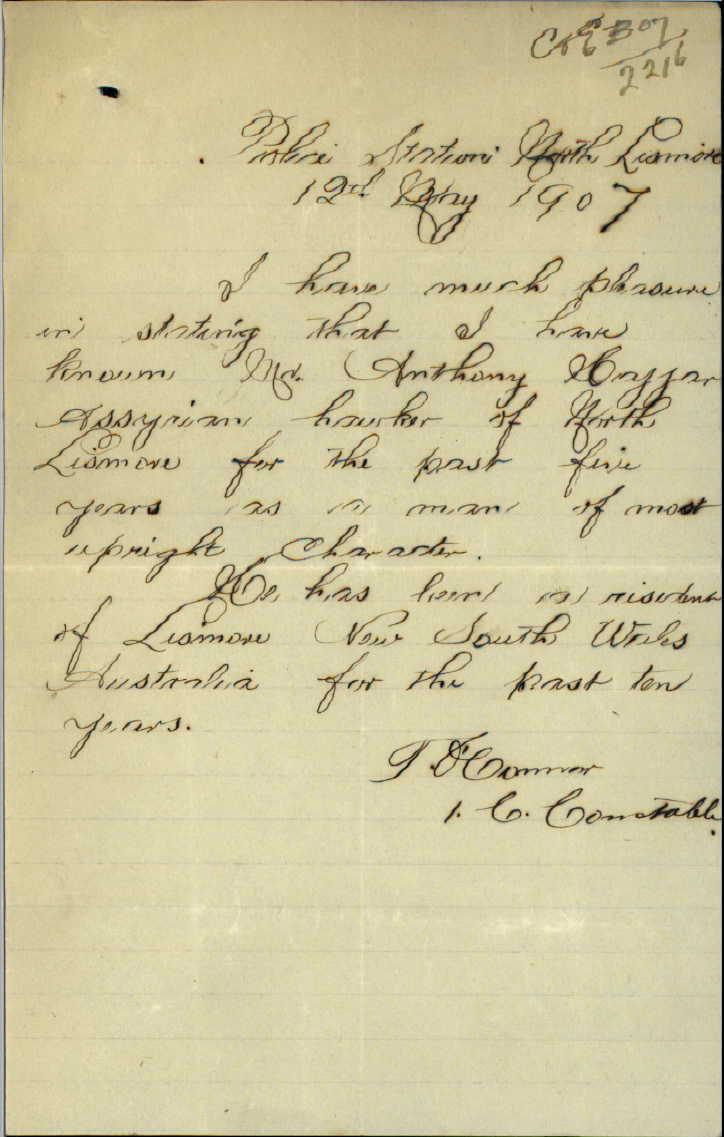 C & E 07
2216
Police Station North Lismore
12th May 1907
I have much pleasure
in stating that I have
known Mr. Anthony Hajjar
Assyrian hawker of North
Lismore for the past five
years as a man of most
upright Character.
He has been a resident
of Lismore New South Wales
Australia for the past ten
years.
T O'Connor
1. C. Constable.